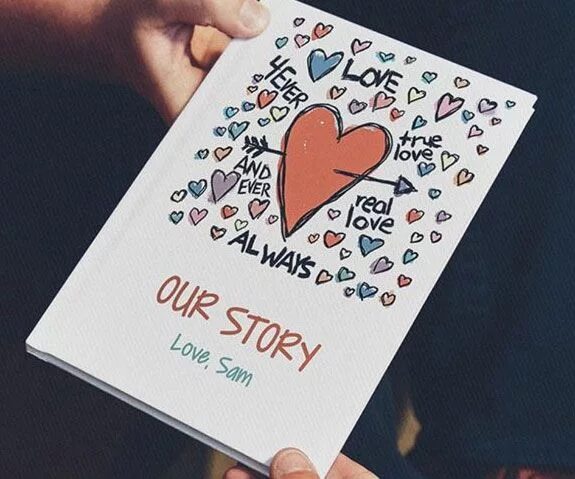 LOVE
4EVER
true
love
AND
EVER
real
love
ALWAYS
OUR STORY
Love, Sam